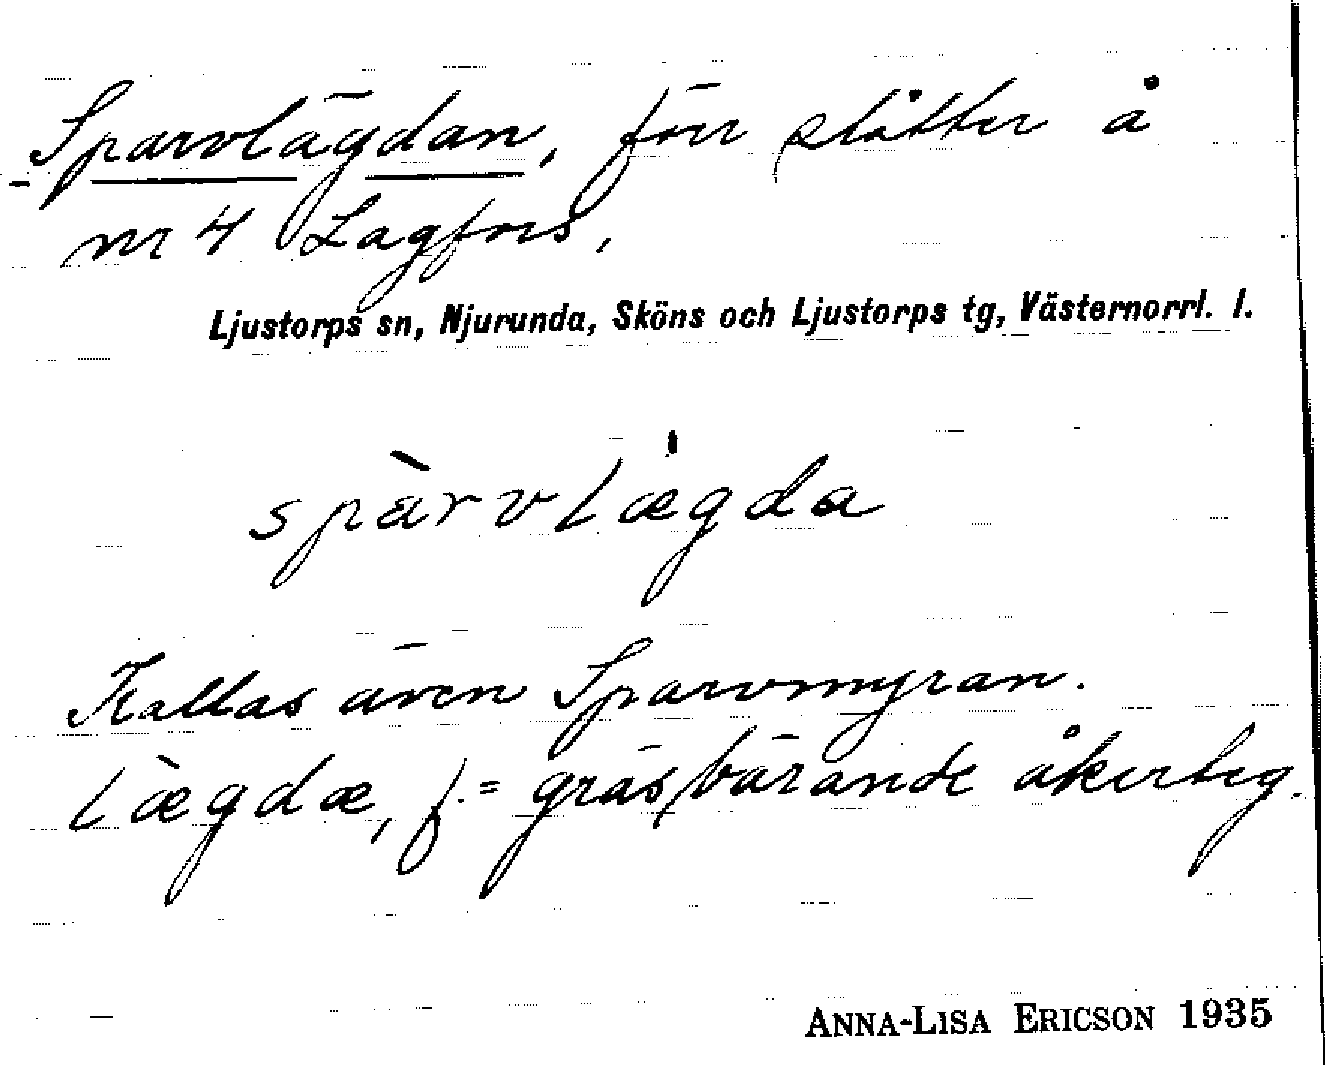 Sparvlägdan, förr slåtter å
nr 4 Lagfors,
Ljustorps sn, Njurunda, Sköns och Ljustorps tg, Västernorrl. l.
spàrvlægda
Kallas även Sparvmyran.
lægdæ, f. = gräsbärande åkerteg.
ANNA-LISA ERICSON 1935